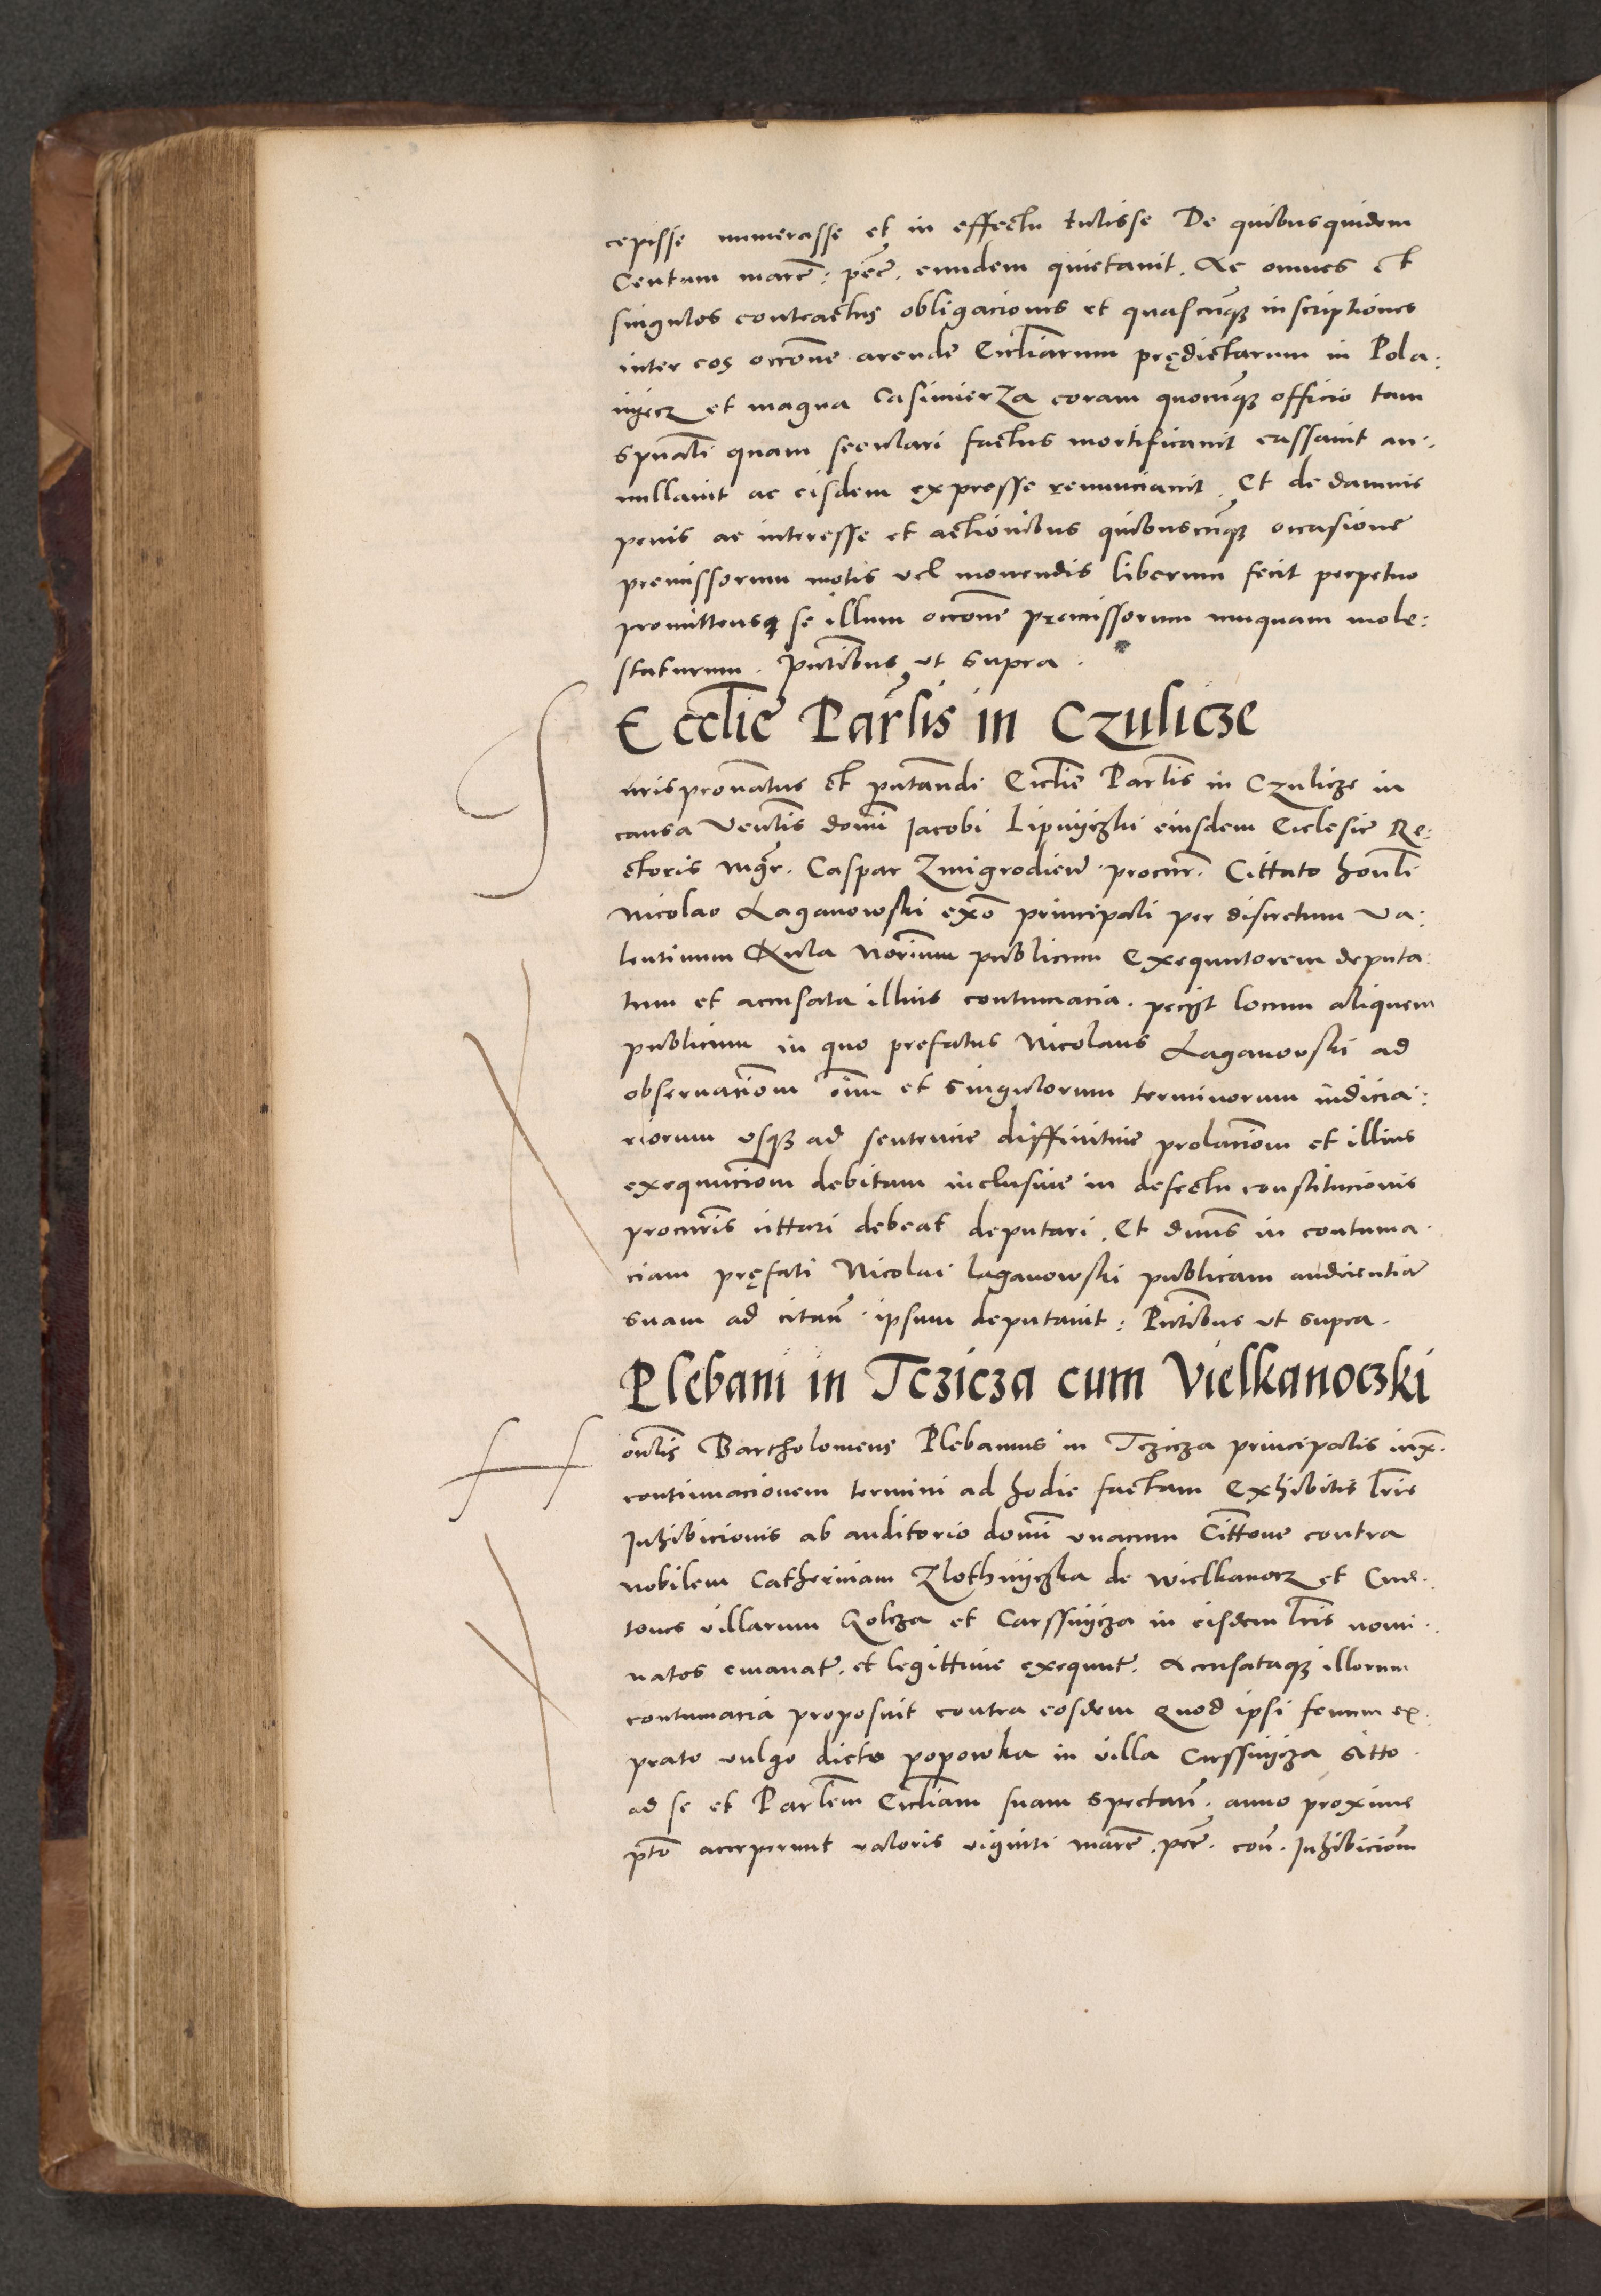 cepisse numerasse et in effectu tulisse De quibusquidem
Centum marc̃. pec̃. eundem quietauit. Ac omnes et
singulos contractus obligaciones et quascunq̨ inscriptiones
inter eos occone arende Ecclīarum prędictarum in Pola:
nijecz et magna Casimierza coram quocunq̨ officio tam
spūali quam seculari factus mortificauit cassauit an:
nullauit ac eisdem expresse renunciauit. Et de damnis
penis ac interesse et actionibus quibuscunq̨ occasione
premissorum motis vel mouendis liberum fecit perpetuo
promittensq̨ se illum occone premissorum nunquam mole:
staturum. Pñtibus vt supra.
Ecclīe Par̃lis in Czulicze
J
urispronatus et pñtandi Ecclīe Parl̃is in Czulicze in
causa Venl̃is domī Jacobi Lipnijczki eiusdem Ecclesie Re:
ctoris mgr̃. Caspar Zmigrodień procur̃. Cittato honl̃i
Nicolao Laganowski exõ principali per discretum Va:
lentinum Kula Norium publicum Exequutorem deputa:
tum et accusata illius contumacia. pecijt locum aliquem
publicum in quo prefatus Nicolaus Laganowski ad
obseruaciom̃ oĩm et singulorum terminorum iudicia:
riorum vsq̨ ad sentencie diffinitiue prolaciom̃ et illius
exequuciom̃ debitam inclusiue in defectu constitucionis
procur̃is cittari debeat deputari. Et dnus in contuma:
ciam pręfati Nicolai laganowski publicam audientiã
suam ad citañ. ipsum deputauit: Pñtibus vt supra.
Plebani in Tczicza cum Vielkanoczki
H
onl̃is Bartholomeus Plebanus in Tczicza principalis iux̃.
continuacionem termini ad hodie factam Exhibitis l̃ris
Inhibicionis ab auditorio domī vnacum Cittone contra
nobilem Catherinam Zlothnijczka de Wielkanocz et Cme:
tones villarum Golcza et Carssnijcza in eisdem l̃ris nomi:
natos emanat̃. et legittime exequut̃. Accusataq̨ illorum
contumacia proposuit contra eosdem Quod ipsi fenum ex
prato vulgo dicto popowka in villa Carssnijcza sitto
ad se et Parl̃em Ecclīam suam spectañ. anno proxime
p̃to acceperunt valoris viginti marc̃. pec̃. con̄. Inhibiciom̃